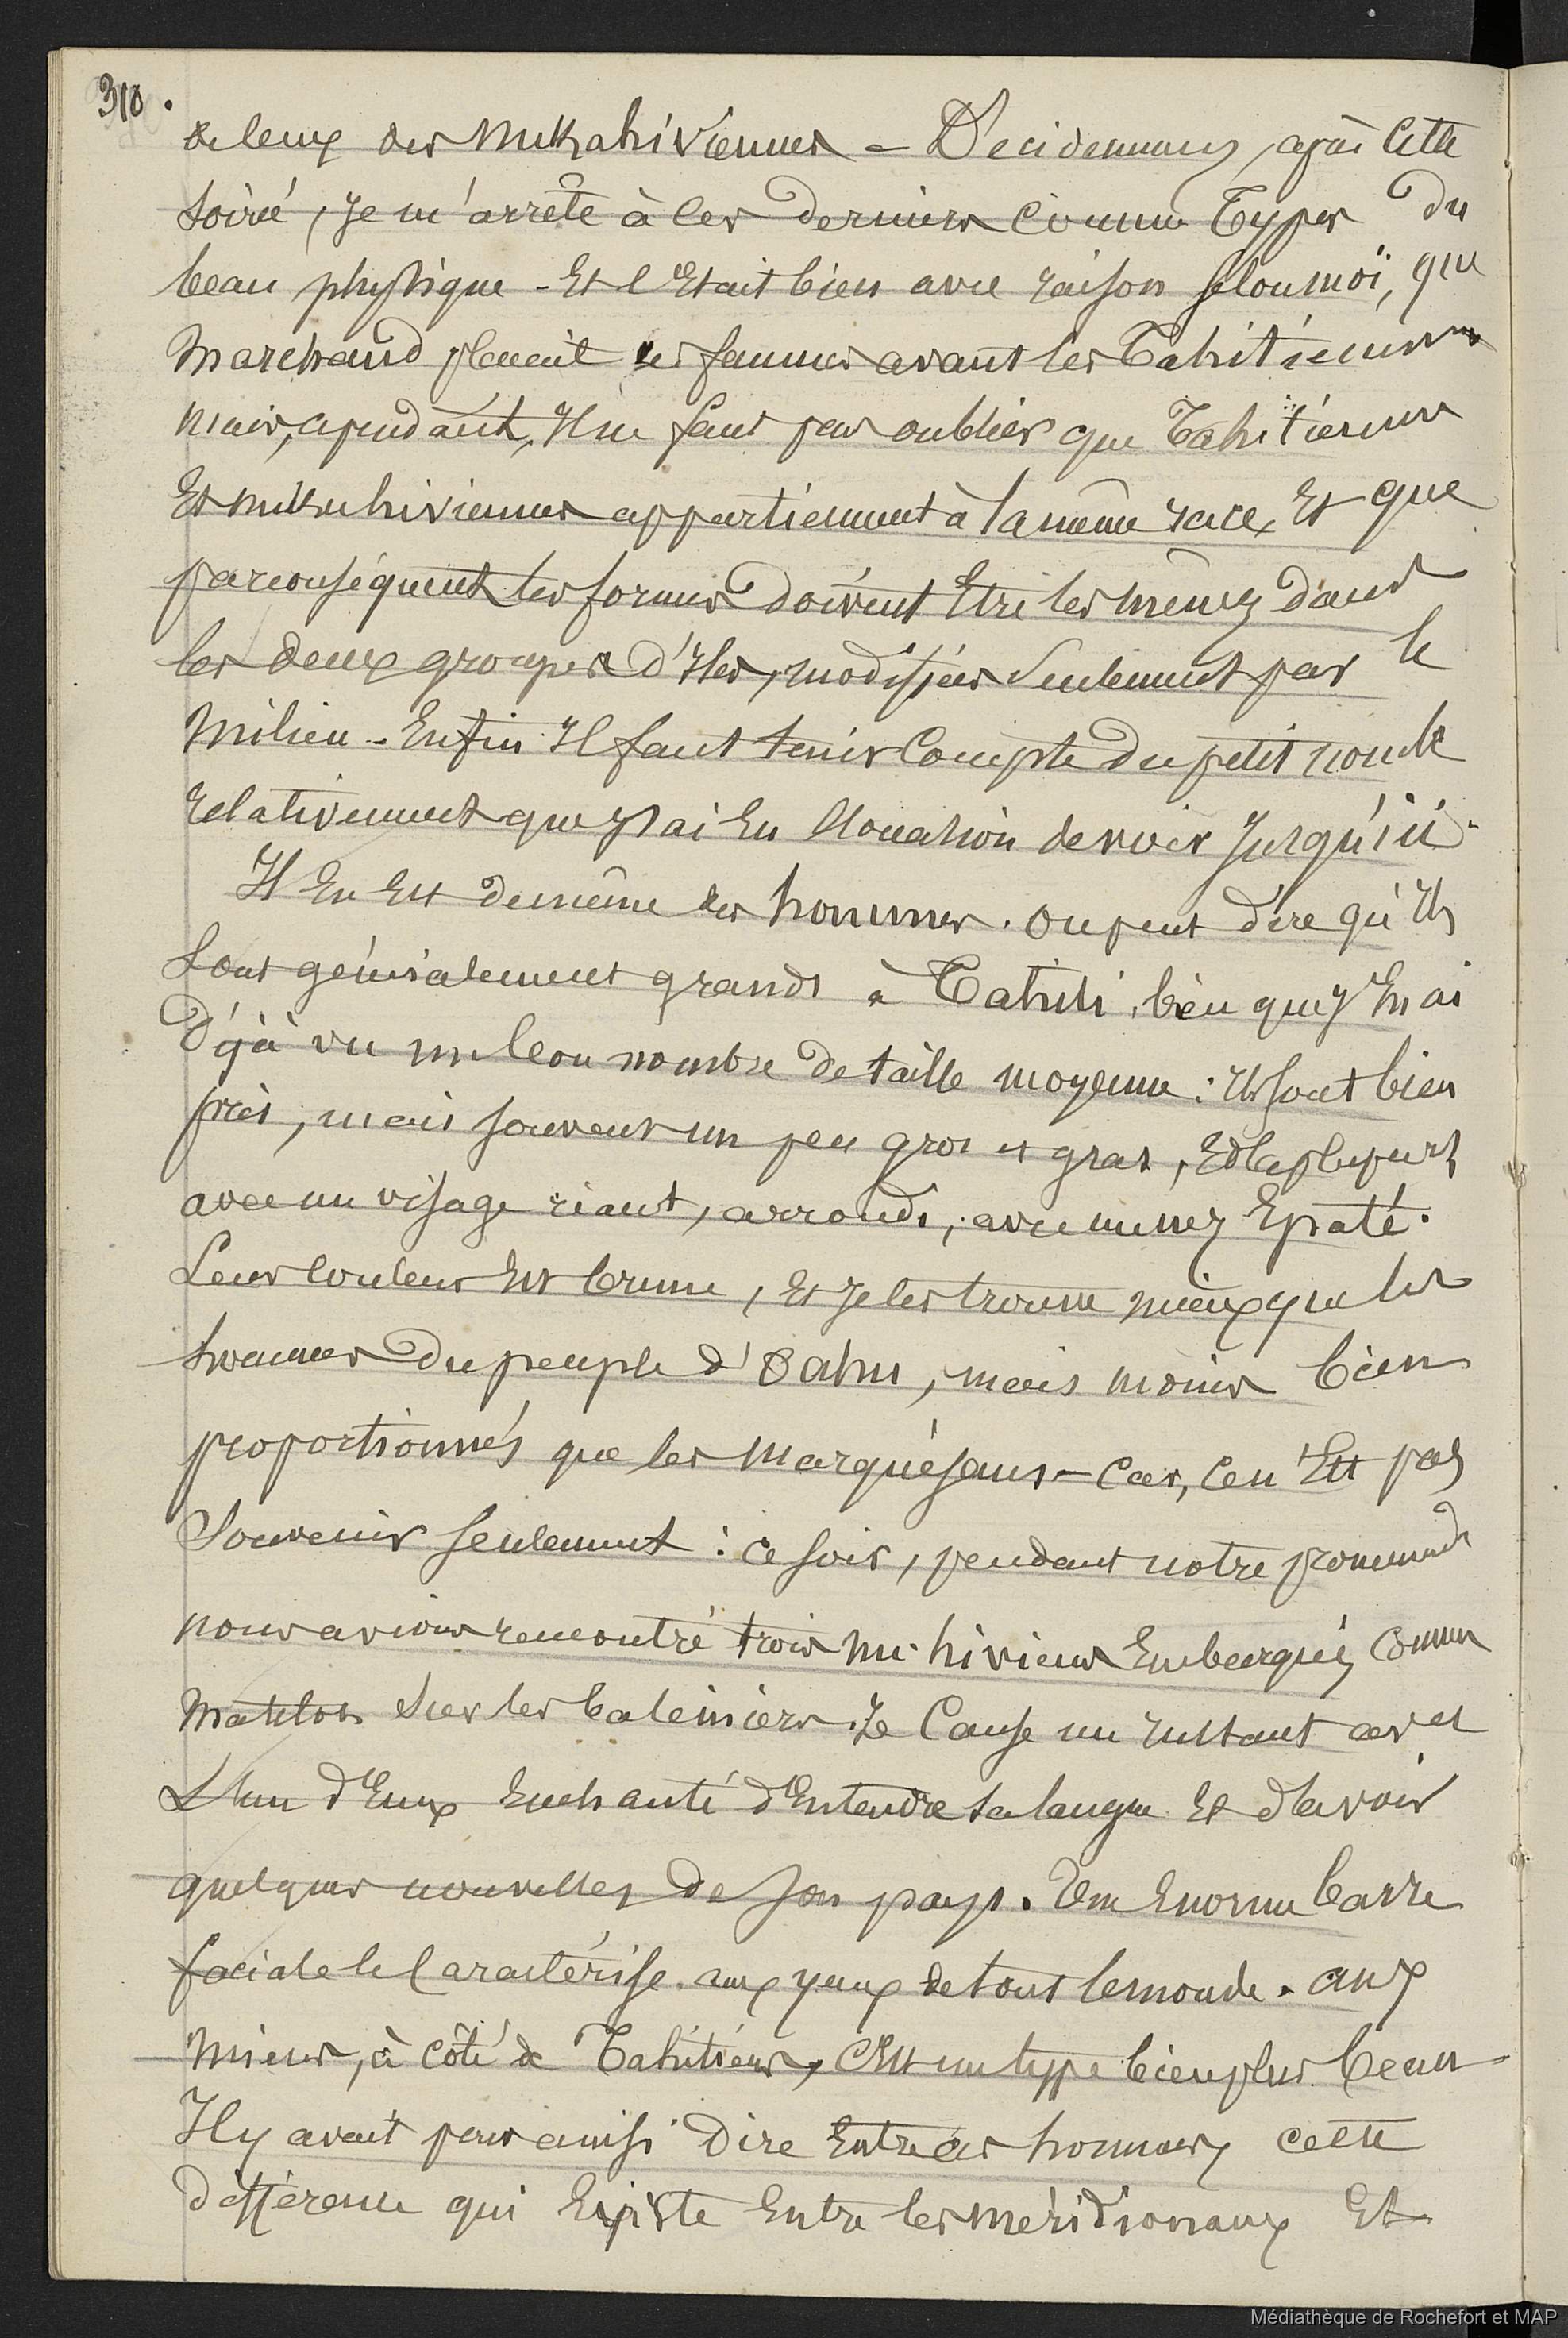 310.
de leurs des Nukahiviennes - Décidemment, après cette
soirée, je m'arrête à ces derniers comme types du
beau physique - Et c'était bien avec raison selon moi, que
Marchand plaçait ses femmes avant les Tahitiennes
mais, cependant, Il ne faut pas oublier que Tahitiennes
Et nukuhiviennes appartiennent à la même race, Et que
par conséquent les formes doivent Etre les mêmes dans
les deux groupes d'Iles, modifiées seulement par le
milieu - Enfin Il faut tenir compte du petit nombre
relativement que j'ai Eu l'occasion de voir jusqu'ici.
Il En Est de même des hommes. on peut dire qu'Ils
sont généralement grands à Tahiti, bien que j'En ai
déjà vu un bon nombre de taille moyenne : Ils sont bien
pris, mais souvent un peu gros et gras, Et la plupart
avec un visage riant, arrondi, avec un nez Epaté.
Leur couleur Est brune, Et je les trouve mieux que les
hommes du peuple d'Oahu, mais moins bien
proportionnés que les marquésans - Car, ce n'Est pas
souvenir seulement : ce soir, pendant notre promenade
nous avions rencontré trois nu-hiviens Embarqués comme
matelots sur les baleiniers. Je cause un Instant avec
L'un d'Eux Enchanté d'Entendre sa langue Et d'avoir
quelques nouvelles de son pays. Une Enorme barre
faciale le caractérise aux yeux de tout le monde. aux
miens, à côté de Tahitiens, c'Est un type bien plus beau
Il y avait pour ainsi dire Entre ces hommes cette
différence qui Existe Entre les méridionaux Et
Médiathèque de Rochefort et MAP